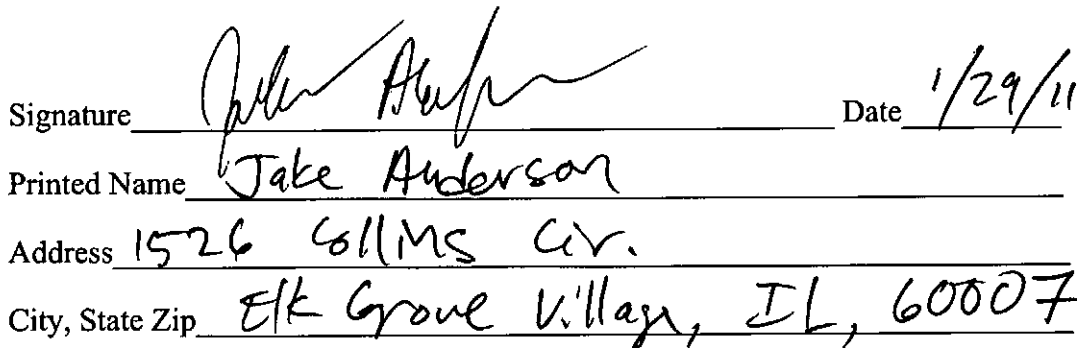 Signature Date 1/29/11
Printed Name Jake Anderson
Address 1526 Collins Cir.
City, State Zip Elk Grove Village, IL, 60007